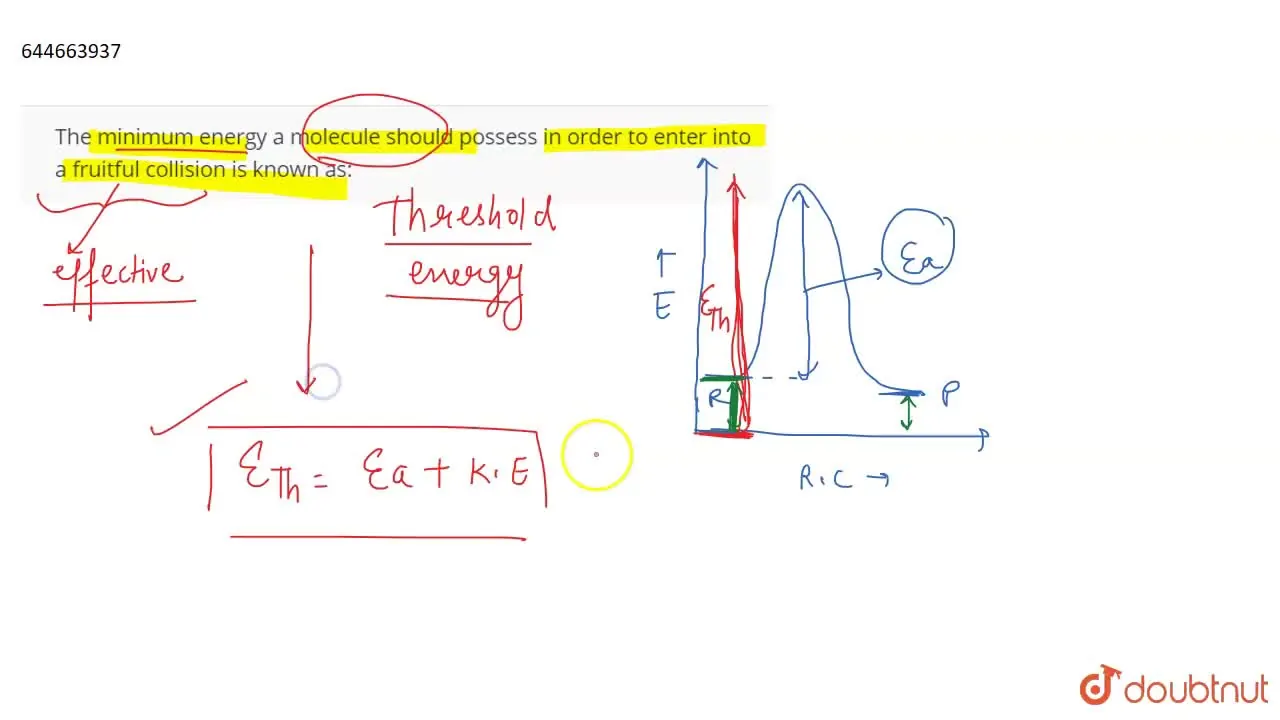 644663937
The minimum energy a molecule should possess in order to enter into
a fruitful collision is known as:
effective
Threshold
energy
ETh = Ea + K.E
↑
E
ETh
R
Ea
P
R.C →
doubtnut